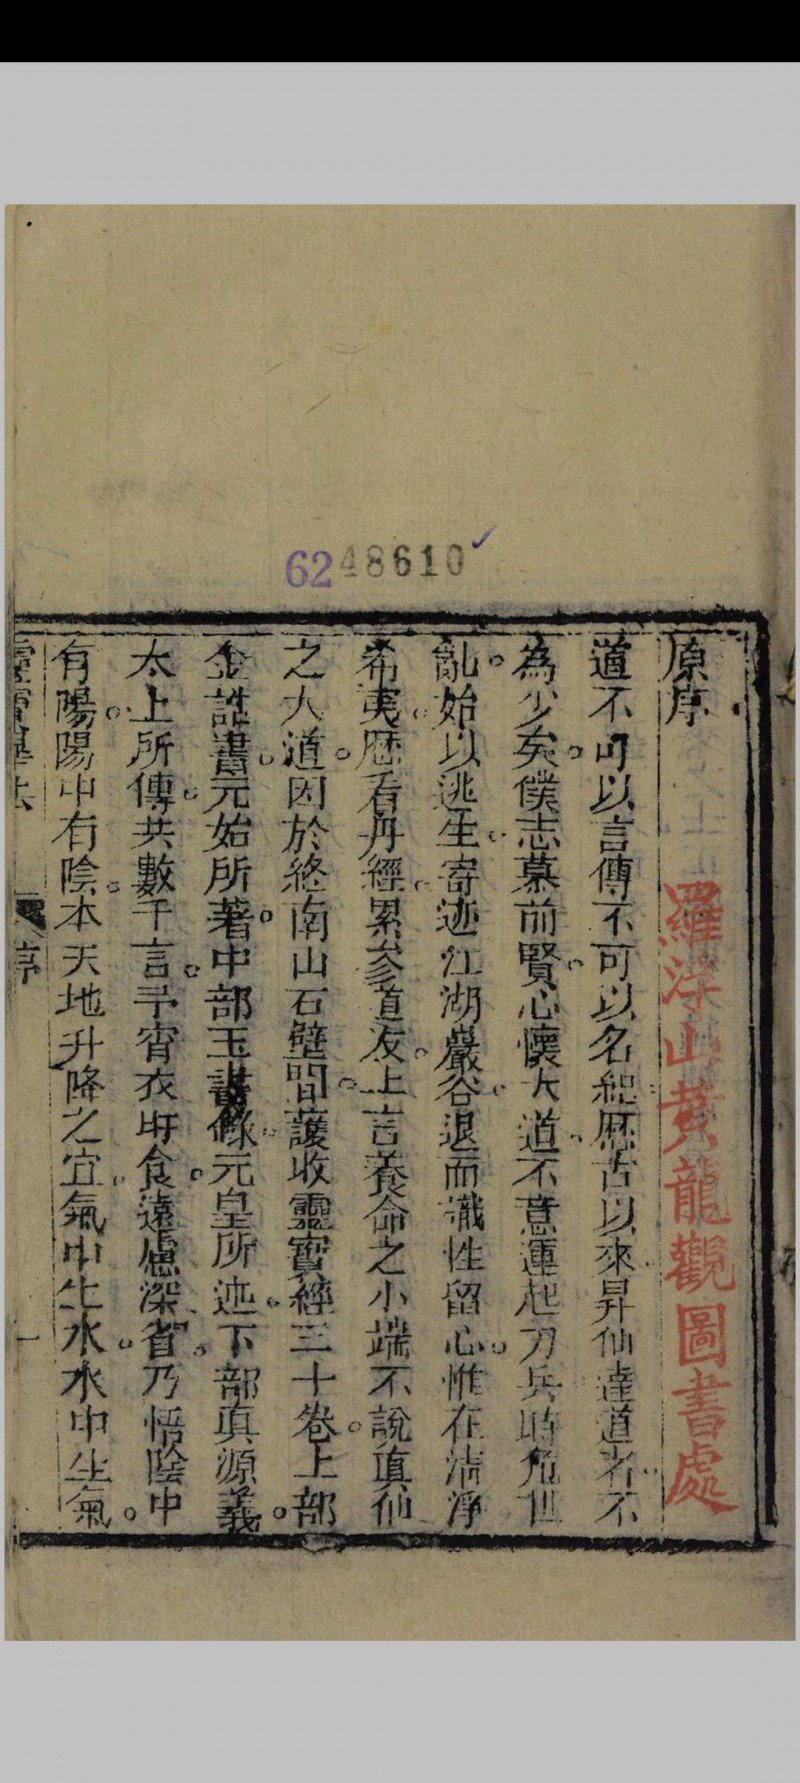 6248610
原序
羅浮山黃龍觀圖書處
道不可以言傳不可以名紀歷古以來昇仙達道者不
為少矣僕志慕前賢心懷大道不意運起刀兵時危世
亂始以逃生寄迹江湖巖谷退而識性留心惟在清淨
希夷歴看丹經累參道友止言養命之小端不說真仙
之大道因於終南山石壁間蒦收靈寶經三十卷上部
金誥書元始所著中部玉書錄元皇所述下部真源義
太上所傳共數千言予宵衣旰食遠慮深省乃悟陰中
有陽陽中有陰本天地升降之宜氣中生水水中生氣
靈寶畢法 序 一